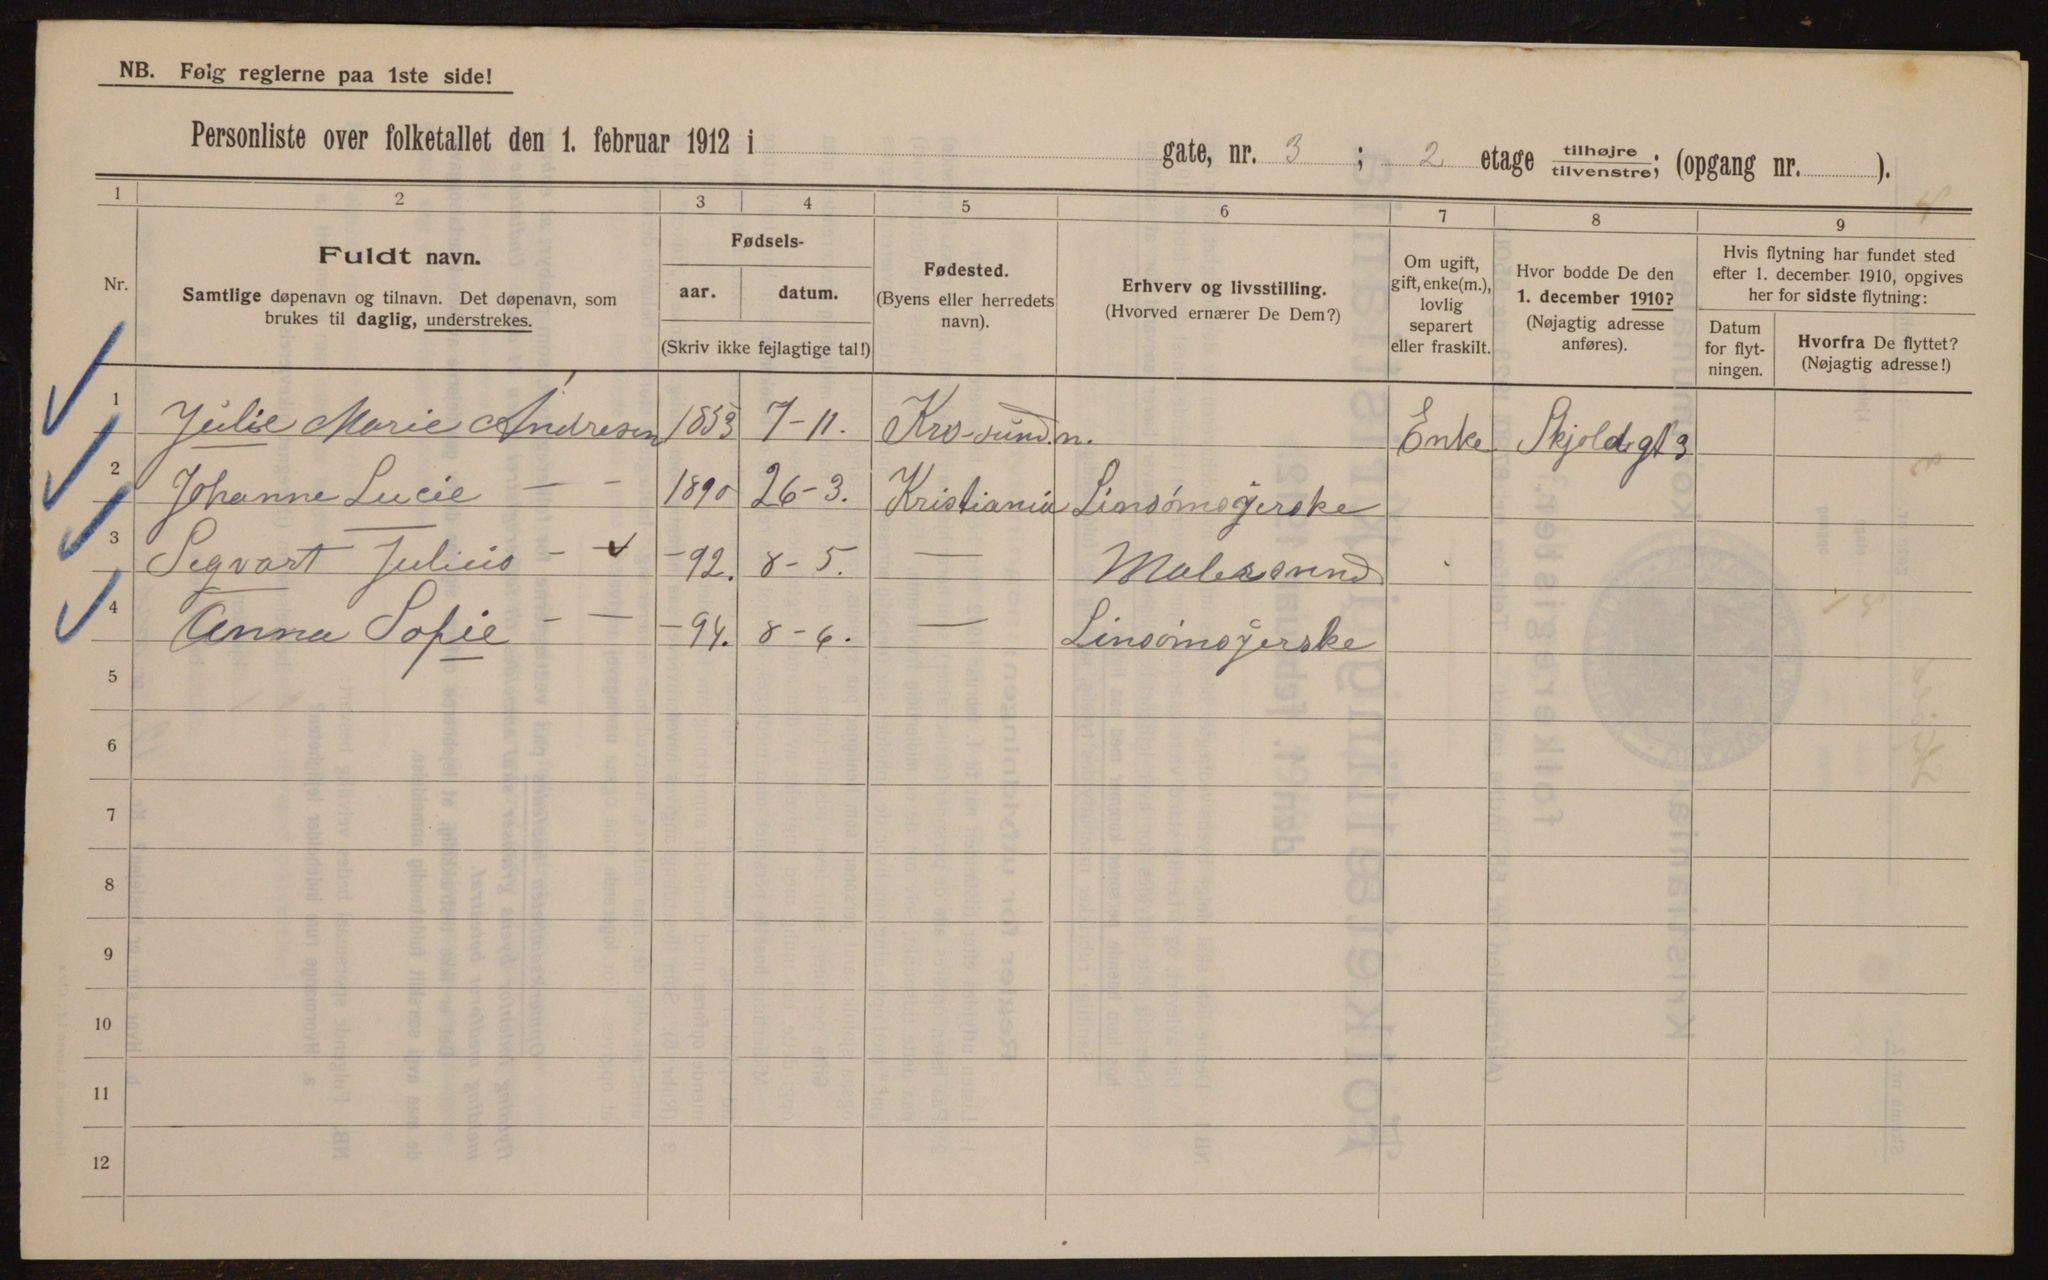 NB. Følg reglerne paa 1ste side!
Personliste over folketallet den 1. februar 1912 i gate, nr. 3 ; 2 etage tilhøjre tilvenstre; (opgang nr. ).
1 2 3 4 5 6 7 8 9
Nr.
Fuldt navn.
Samtlige døpenavn og tilnavn. Det døpenavn, som
brukes til daglig, understrekes.
Fødsels-
aar. datum.
(Skriv ikke fejlagtige tal!)
Fødested.
(Byens eller herredets
navn).
Erhverv og livsstilling.
(Hvorved ernærer De Dem?)
Om ugift,
gift, enke(m.),
lovlig
separert
eller fraskilt.
Hvor bodde De den
1. december 1910?
(Nøjagtig adresse
anføres).
Hvis flytning har fundet sted
efter 1. december 1910, opgives
her for sidste flytning:
Datum
for flyt-
ningen.
Hvorfra De flyttet?
(Nøjagtig adresse!)
1 Julie Marie Andresen 1853 7-11. Enke Skjoldgt 3
2 Johanne Lucie — - 1890 26-3. Kristiania
3 Segvart Julius - - -92. 8-5. — Malersvend
4 Anna Sofie - — -94. 8-6. —
5
6
7
8
9
10
11
12